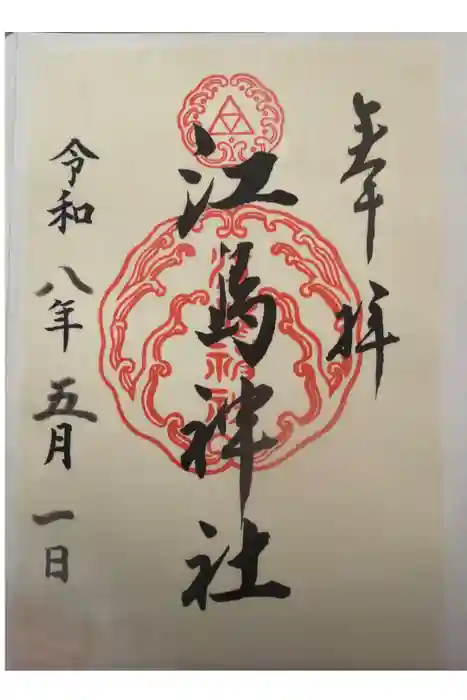 奉拝
江島神社
令和八年五月一日